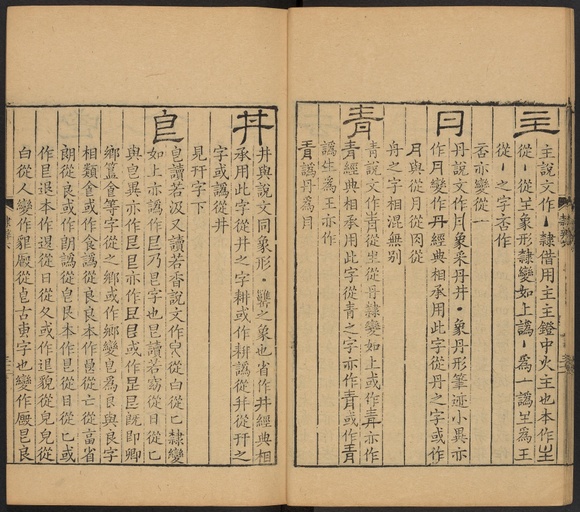 主
主說文作丶隸借用主主鐙中火主也本作
從丶從象形隸變如上譌丶爲一譌爲王
從丶之字咅作
咅亦變從一
丹說文作月象采丹井丶象丹形筆迹小異亦
作月變作丹經典相承用此字從丹之字或作
月與從月從肉從
舟之字相混無別
青
青說文作從生從丹隸變如上或作亦作
青經典相承用此字從青之字亦作青或作青
譌生爲王亦作
譌丹爲月
井
井與說文同象形丶之象也省作井經典相
承用此字從井之字耕或作耕譌從幵從幵之
字或譌從井
見幵字下
皀
皀讀若汲又讀若香說文作從白從匕隸變
如上亦譌作乃字也皀讀若窈從日從匕
與皀亦作亦作或作既即卿
鄉簋食等字從之鄉或作鄉變皀爲良與良字
相類食或作食譌從良良本作從亡從畐省
朗從良或作朗譌從皀艮本作從目從匕或
作退本作從日從夂或作退貌從皃皃從
白從人變作貇廄從皀古叀字也變作廄艮